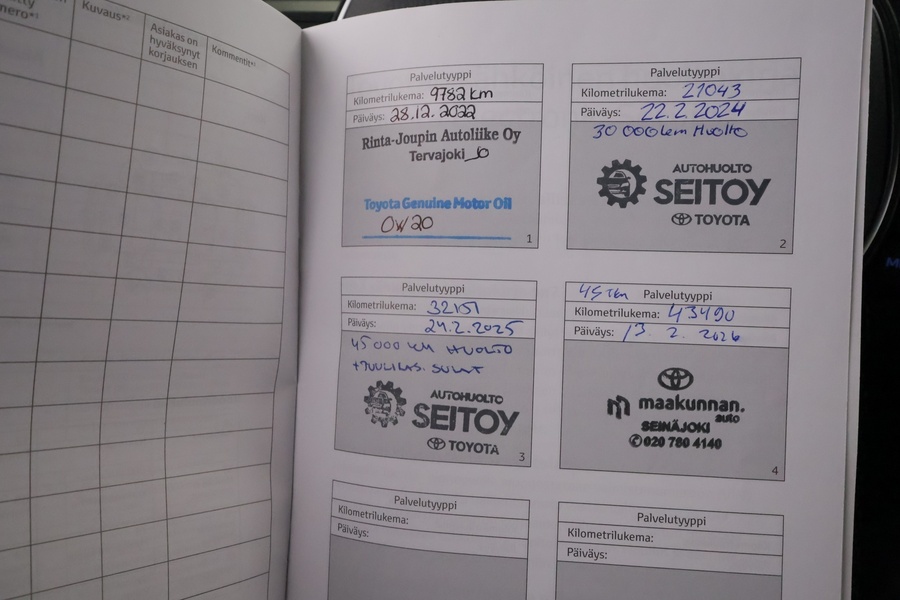 mero*¹
Kuvaus*²
Asiakas on
hyväksynyt
korjauksen
Kommentit*¹
Palvelutyyppi
Kilometrilukema: 9782 km
Päiväys: 28.12.2022
Rinta-Joupin Autoliike Oy
Tervajoki
Toyota Genuine Motor Oil
0W20
1
Palvelutyyppi
Kilometrilukema: 21043
Päiväys: 22.2.2024
30 000 km Huolto
AUTOHUOLTO
SEITOY
TOYOTA
2
Palvelutyyppi
Kilometrilukema: 32151
Päiväys: 24.2.2025
45 000 km HUOLTO
+TUULILAS. SULAT
AUTOHUOLTO
SEITOY
TOYOTA
3
45 Tkm Palvelutyyppi
Kilometrilukema: 43490
Päiväys: 13. 2. 2026
maakunnan.
auto
SEINÄJOKI
020 780 4140
4
Palvelutyyppi
Kilometrilukema:
Päiväys:
Palvelutyyppi
Kilometrilukema:
Päiväys: